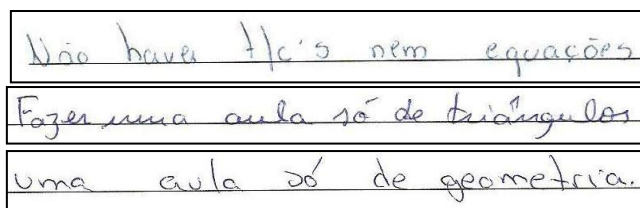 Não haver t/c's nem equações
Fazer uma aula só de triângulos
uma aula só de geometria.